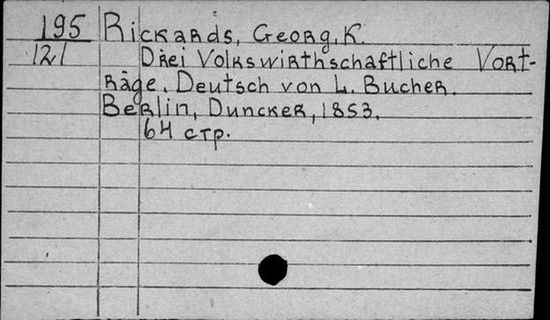 195 Rickards, Georg, K.
121 Drei Volkswirthschaftliche Vort-
räge. Deutsch von L. Bucher.
Berlin, Duncker, 1853.
64 стр.